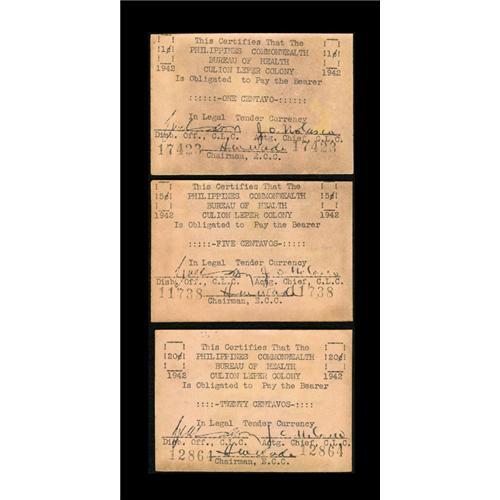 This Certifies That The
1¢ PHILIPPINES COMMONWEALTH 1¢
BUREAU OF HEALTH
1942 CULION LEPER COLONY 1942
Is Obligated to Pay the Bearer
::::::-ONE CENTAVO-::::::
In Legal Tender Currency
Disb. Off., C.L.C. Actg. Chief, C.L.C.
17423 H W Wade 17423
Chairman, E.C.C.
This Certifies That the
5¢ PHILIPPINES COMMONWEALTH 5¢
BUREAU OF HEALTH
1942 CULION LEPER COLONY 1942
Is Obligated to Pay the Bearer
:::::-FIVE CENTAVOS-:::::
In Legal Tender Currency
Disb. Off., C.L.C. Actg. Chief, C.L.C.
11738 H W Wade 11738
Chairman, E.C.C.
This Certifies That the
20¢ PHILIPPINES COMMONWEALTH 20¢
BUREAU OF HEALTH
1942 CULION LEPER COLONY 1942
Is Obligated to Pay the Bearer
::::-TWENTY CENTAVOS-::::
In Legal Tender Currency
Disb. Off., C.L.C. Actg. Chief, C.L.C.
12864 H W Wade 12864
Chairman, E.C.C.